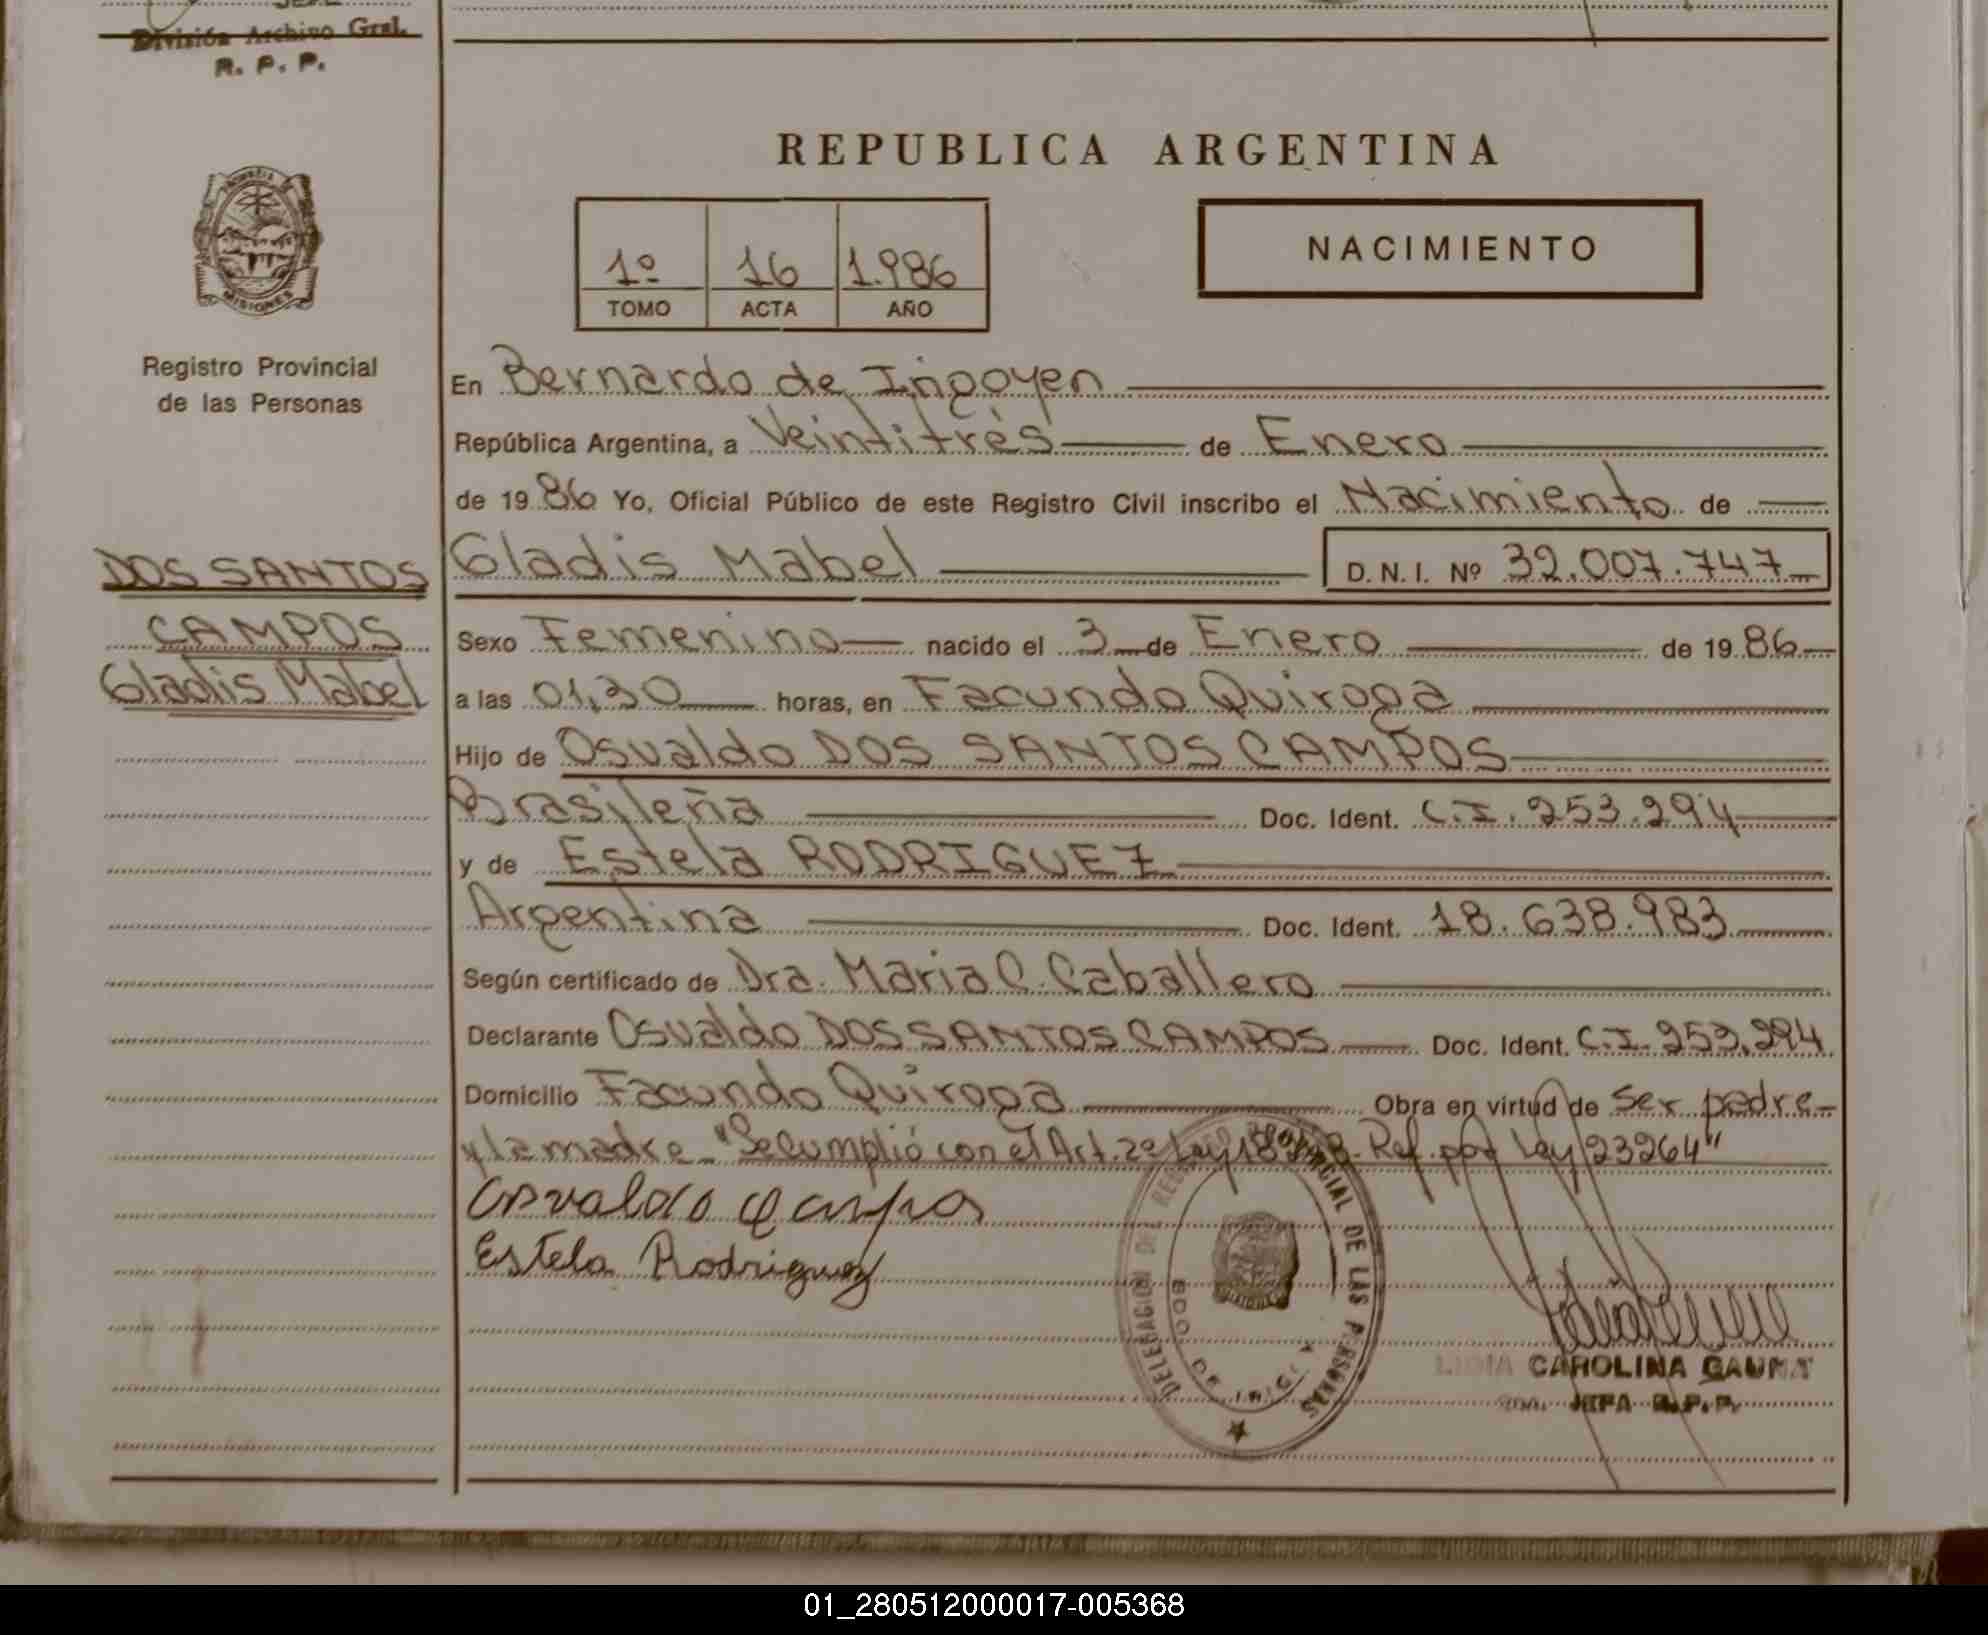 División Archivo Gral.
R. P. P.
REPUBLICA ARGENTINA
PROVINCIA DE
MISIONES
Registro Provincial
de las Personas
1º 16 1.986
TOMO ACTA AÑO
NACIMIENTO
En Bernardo de Irigoyen
República Argentina, a Veintitrés de Enero
de 19 86 Yo, Oficial Público de este Registro Civil inscribo el Nacimiento de
DOS SANTOS
CAMPOS
Gladis Mabel
Gladis Mabel D.N.I. Nº 32.007.747
Sexo Femenino nacido el 3 de Enero de 19 86
a las 01,30 horas, en Facundo Quiroga
Hijo de Osvaldo DOS SANTOS CAMPOS
Brasileña Doc. Ident. C.I. 253.294
y de Estela RODRIGUEZ
Argentina Doc. Ident. 18.638.983
Según certificado de Dra. Maria C. Caballero
Declarante Osvaldo DOS SANTOS CAMPOS Doc. Ident. C.I. 253.294
Domicilio Facundo Quiroga Obra en virtud de ser padre
y la madre "Se cumplió con el Art. 2º Ley Ref. por Ley 23264"
Osvaldo Campos
Estela Rodriguez
DELEGACION DEL REGISTRO PROVINCIAL DE LAS PERSONAS
BDO. DE IRIGOYEN
LIDIA CAROLINA GAUNA
JEFA R.P.P.
01_280512000017-005368